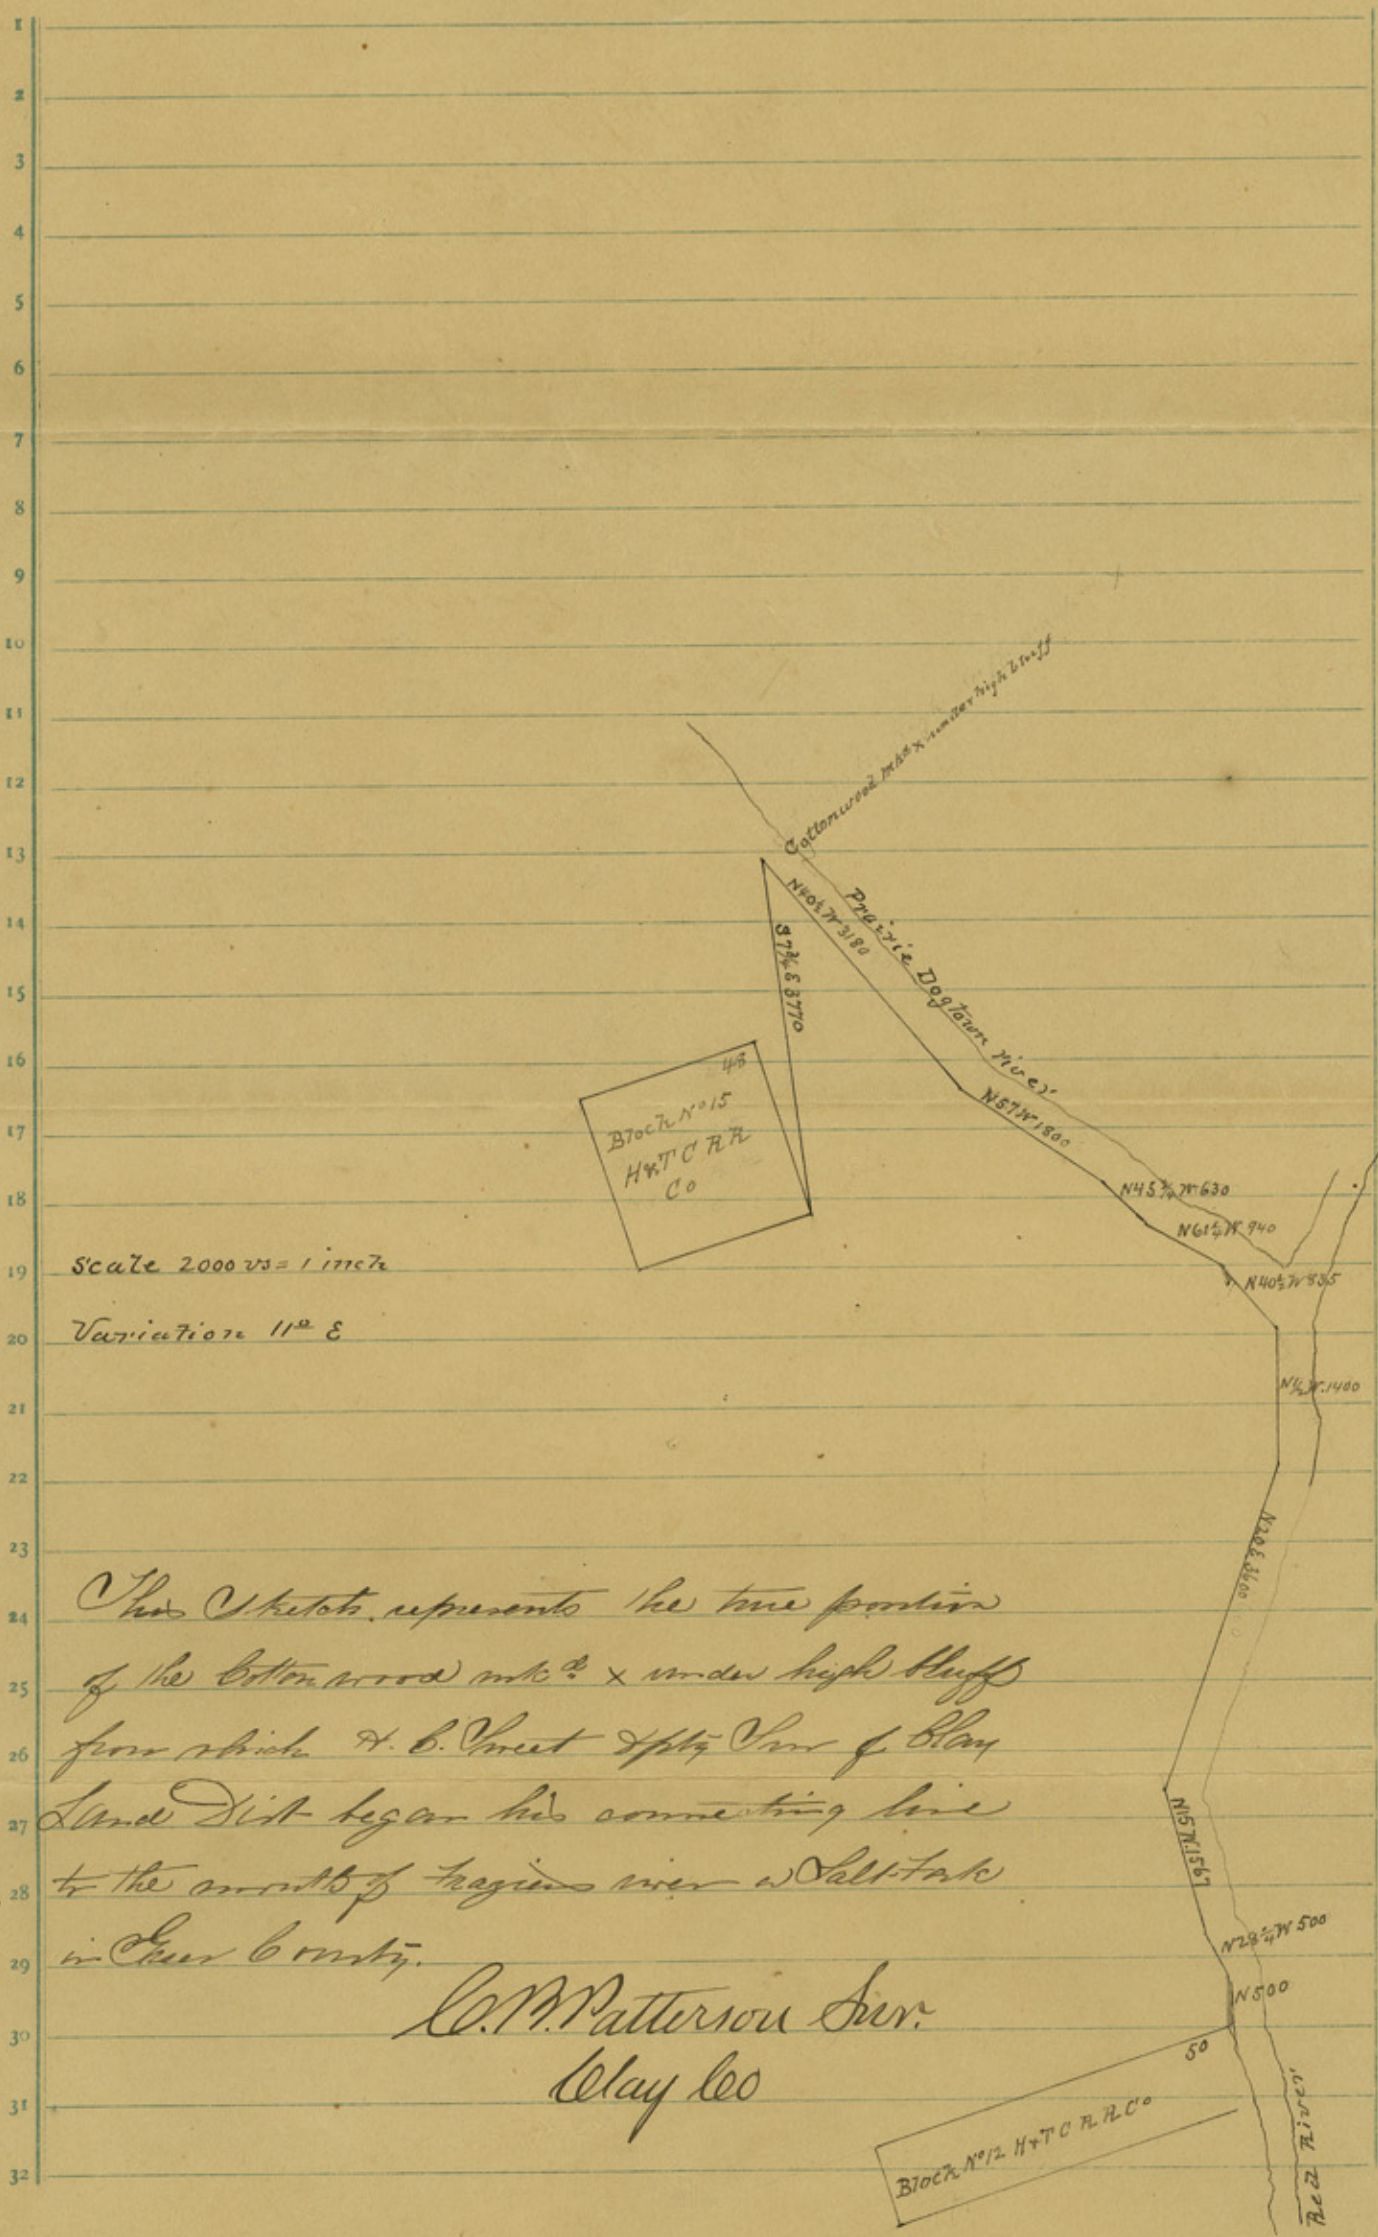 1
2
3
4
5
6
7
8
9
10
11
12
13
14
15
16
17
18
19
20
21
22
23
24
25
26
27
28
29
30
31
32
Cottonwood mkd x under high bluff
Prairie Dogtown river
N40½W 3180
S7¾E 3770
N57W 1800
48
Block No 15
H&T C RR
Co
N45¾W 630
N61¼W 940
N40½W 835
N½W. 1400
N20E 3600
N15W. 1567
N28¼W 500
N 500
50
Block No 12 H&T C R R Co
Red River
Scale 2000 vs = 1 inch
Variation 11° E
This Sketch represents the true position
of the Cottonwood mkd x under high bluff
from which H. C. Sweet Dpty Sur of Clay
Land Dist began his connecting line
to the mouth of Fraziers river or Salt Fork
in Greer County.
C.B. Patterson Sur.
Clay Co